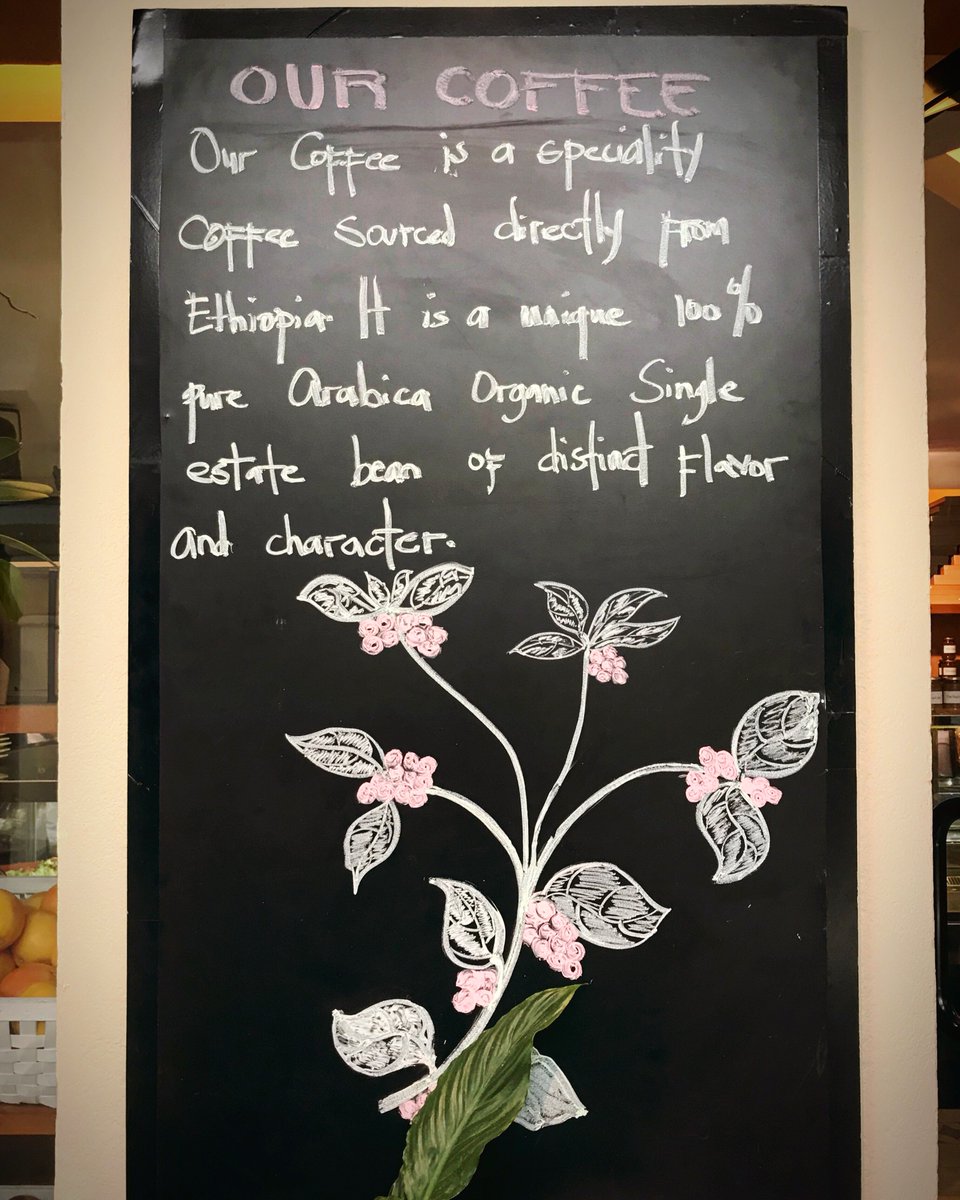 OUR COFFEE
Our Coffee is a speciality
Coffee sourced directly From
Ethiopia It is a unique 100%
pure Arabica Organic Single
estate bean of distinct Flavor
and character.